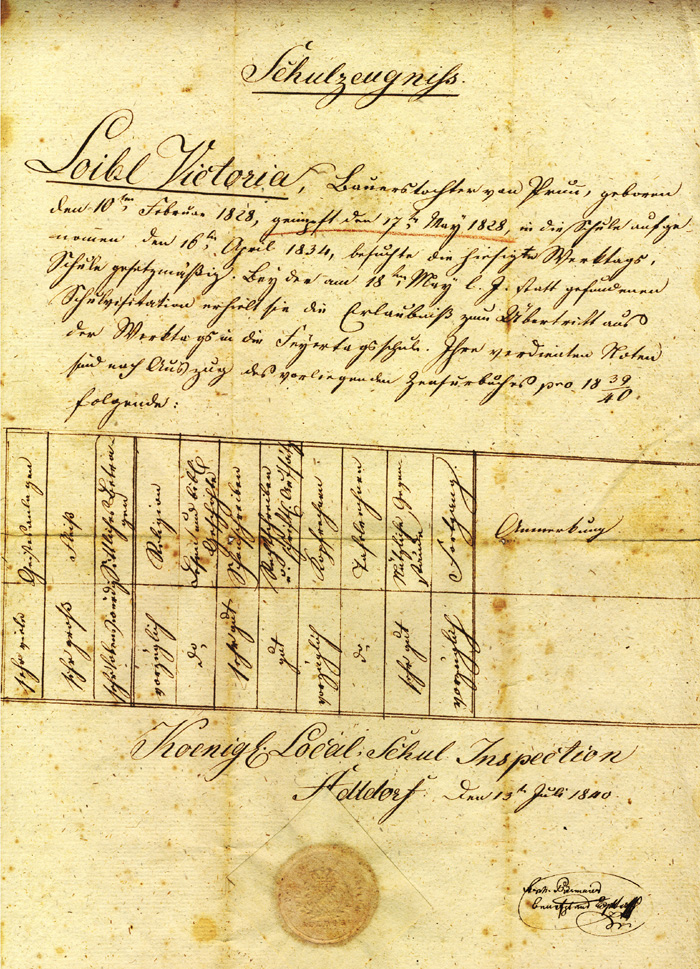 Schulzeugniss.
Loibl Victoria, Bauerstochter von Prun, geboren
den 10ten Februar 1828, geimpft den 17ten May 1828, in die Schule aufge
nomen den 16ten April 1834, besuchte die hiesigte Werktags,
Schule gesetzmäßig. Bey der am 18ten May l. J. statt gefundenen
Schulvisitation erhielt sie die Erlaubniß zum Übertritt aus
der Werktags in die Feyertagsschule. Ihre verdienten Noten
sind nach Auszug des vorliegenden Zensurbuches pro 18 39/40
folgende:
Geistesanlagen
Fleiß
Sittliches Betra-
gen
Religion
Lesen und bibl.
Geschichte
Schönschreiben
Rechtschreiben
u. schriftl. Aufsätze
Kopfrechnen
Tafelrechnen
Nützliche Gegen-
stände
Fortgang
Anmerkung
sehr viele
sehr groß
sehr lobenswürdig
vorzüglich
do.
sehr gut
gut
vorzüglich
do.
sehr gut
vorzüglich
Koenigl. Local-Schul Inspection
den 13ten Juli 1840.